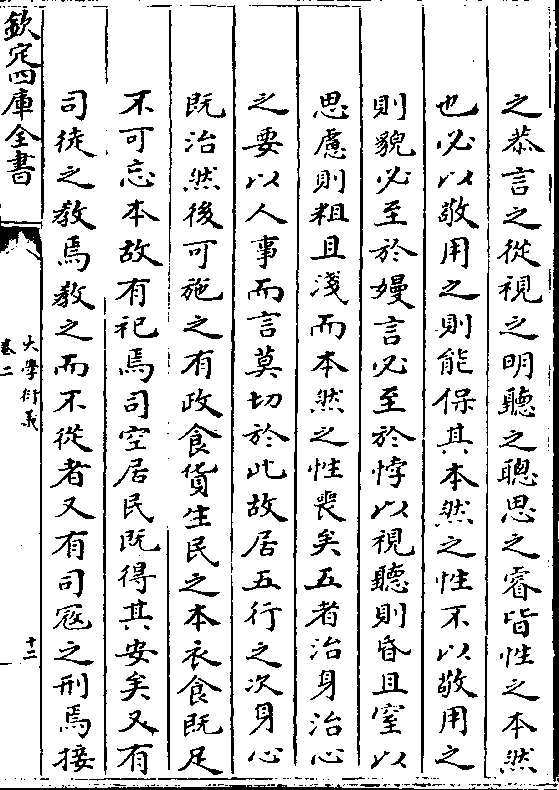 之恭言之從視之明聽之聰思之睿皆性之本然
也必以敬用之則能保其本然之性不以敬用之
則貌必至於嫚言必至於悖以視聽則昏且窒以
思慮則粗且淺而本然之性喪矣五者治身治心
之要以人事而言莫切於此故居五行之次身心
既治然後可施之有政食貨生民之本衣食既足
不可忘本故有祀焉司空居民既得其安矣又有
司徒之教焉教之而不從者又有司冦之刑焉接
欽定四庫全書
大學衍義
卷二
十二